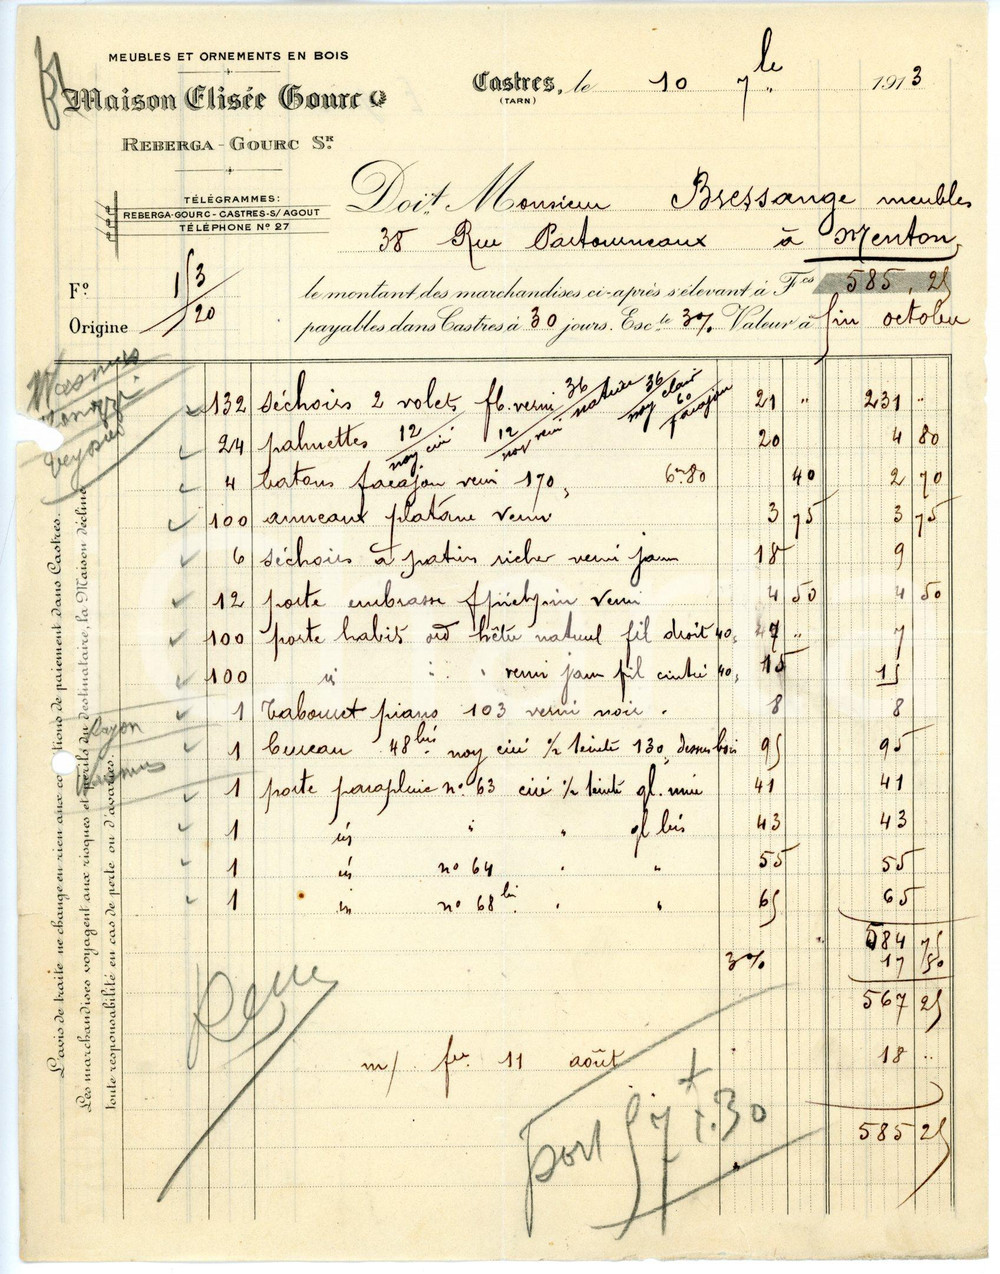 MEUBLES ET ORNEMENTS EN BOIS
Maison Elisée Gourc
REBERGA-GOURC SR.
Castres, le 10 7bre 1913
(TARN)
TÉLÉGRAMMES:
REBERGA-GOURC-CASTRES-S/AGOUT
TÉLÉPHONE No 27
Doit Monsieur Bressange meubles
38 Rue Partouneaux à Menton
Fo 153/20
Origine
le montant des marchandises ci-après s'élevant à Fcs 585,25
payables dans Castres à 30 jours. Escte 3% Valeur à fin octobre
132 séchoirs 2 volets verni 36 naturel 36 noy clair 60 21 " 231 "
24 palmettes 12 noy. ciré 12 noy verni 20 4 80
4 batons verni 170, 6m80 40 2 70
100 anneaux platane verni 3 75 3 75
6 séchoirs à patins verni jaune 18 9
12 porte embrasse verni 4 50 4 50
100 porte habits ord hêtre naturel fil droit 40, 7
100 id verni jaune fil cintré 40, 15 15
1 Tabouret piano 103 verni noir. 8 8
1 bureau 48bis noy ciré 1/2 teinté 130, dessus bois 95 95
1 porte parapluie no 63 ciré 1/2 teinté gl. unie 41 41
1 id " " gl bis 43 43
1 id no 64 " " 55 55
1 id no 68bis " " 65 65
584 75
3% 17 50
567 25
m/ fre 11 août 18 ..
585 25
port 57 + 1.30
Rayon
L'avis de traite ne change en rien aux conditions de paiement dans Castres.
Les marchandises voyagent aux risques et périls du destinataire, la Maison décline
toute responsabilité en cas de perte ou d'avaries.